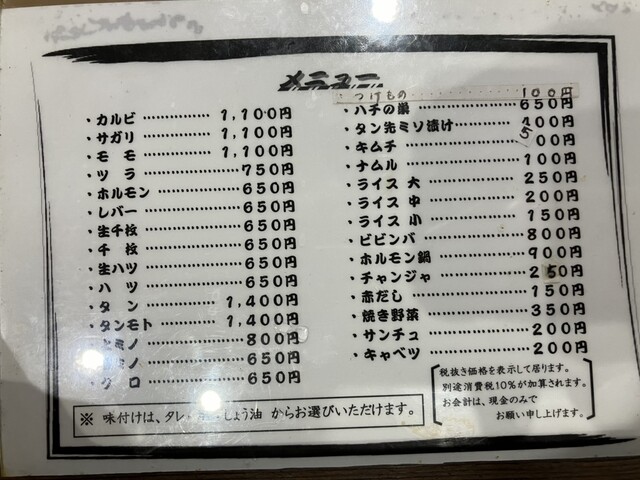 メニュー
・カルビ 1,100円
・サガリ 1,100円
・モモ 1,100円
・ツラ 750円
・ホルモン 650円
・レバー 650円
・生千枚 650円
・千枚 650円
・生ハツ 650円
・ハツ 650円
・タン 1,400円
・タンモト 1,400円
ミノ 800円
ミノ 650円
・グロ 650円
※ 味付けは、タレ しょう油 からお選びいただけます。
・つけもの 100円
・ハチの巣 650円
・タン先ミソ漬け 400円
・キムチ 00円
・ナムル 100円
・ライス 大 250円
・ライス 中 200円
・ライス 小 150円
・ビビンバ 800円
・ホルモン鍋 900円
・チャンジャ 250円
・赤だし 150円
・焼き野菜 350円
・サンチュ 200円
・キャベツ 200円
税抜き価格を表示して居ります。
別途消費税10%が加算されます。
お会計は、現金のみで
お願い申し上げます。